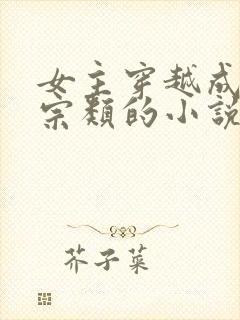 女主穿越成
宗類的小說
芥子菜